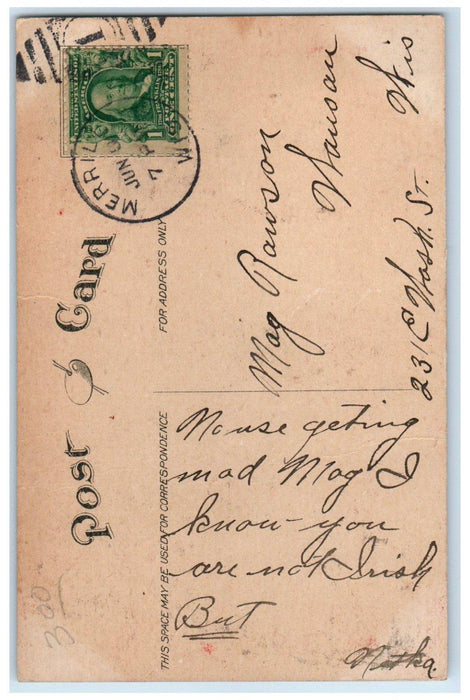 Post Card
THIS SPACE MAY BE USED FOR CORRESPONDENCE
FOR ADDRESS ONLY
MERRILL
JUN
7
WIS
1 1
No use geting
mad Mag I
know you
are not Irish
But
Mag Rawson
Wausau Wis
231 E Wash. St.
300